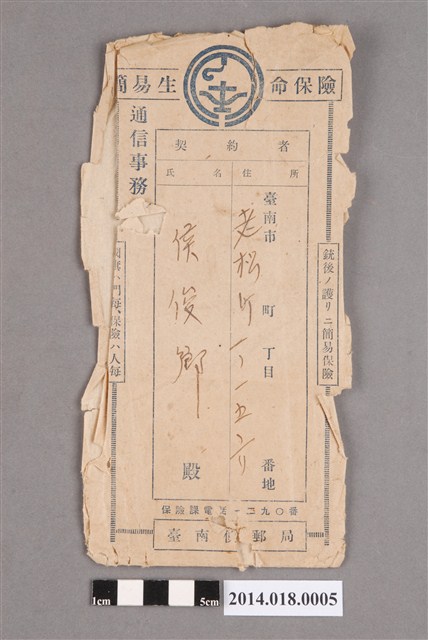 簡易生命保險
通信事務
契約者
氏名 住所
臺南市 老松町 丁目 番地
侯俊卿 殿
銃後ノ護リニ簡易保險
門每、保險ハ人每
保險課電 一二九〇番
臺南 郵局
1cm 5cm
2014.018.0005